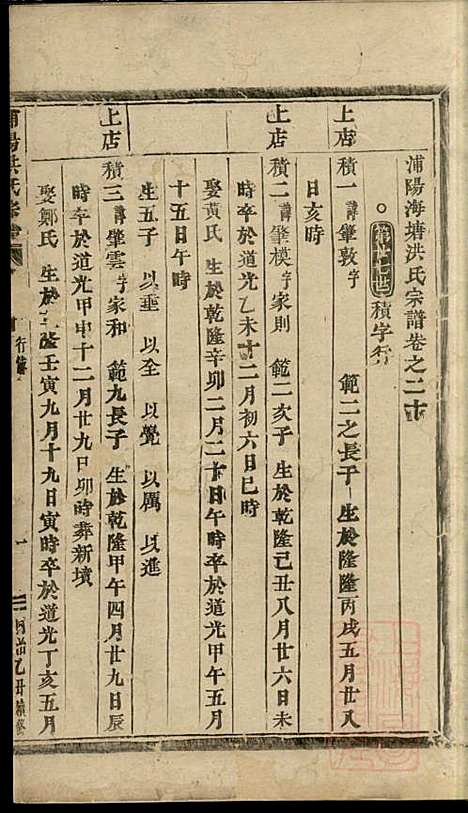 浦陽海塘洪氏宗譜卷之二十
第廿七世 積字行
上店 積一 諱肇敦 字 範二之長子 生於隆隆丙戌五月廿八
日亥時
上店 積二 諱肇模 字家則 範二次子 生於乾隆己丑八月廿六日未
時卒於道光乙未十二月初六日巳時
娶黃氏 生於乾隆辛卯二月二十日午時卒於道光甲午五月
十五日午時
生五子 以垂 以全 以覺 以厲 以進
上店 積三 諱肇雲 字家和 範九長子 生於乾隆甲午四月廿九日辰
時卒於道光甲申十二月廿九日卯時葬新墳
娶鄭氏 生於乾隆壬寅九月十九日寅時卒於道光丁亥五月
浦陽洪氏宗譜
行傳
一
同治乙丑續修